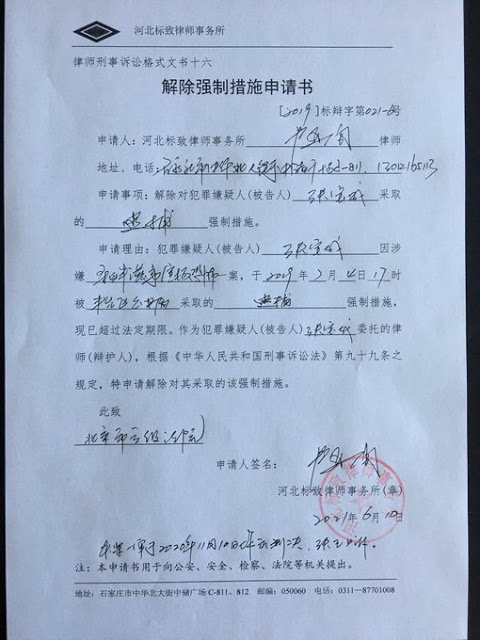 河北标致律师事务所
律师刑事诉讼格式文书十六
解除强制措施申请书
[2019]标辩字第021-6号
申请人：河北标致律师事务所 律师
地址、电话：
申请事项：解除对犯罪嫌疑人(被告人) 张宝成 采取
的 逮捕 强制措施。
申请理由：犯罪嫌疑人(被告人) 张宝成 因涉
嫌 一案，于 2019 年 2 月 4 日 17 时
被 采取的 逮捕 强制措施，
现已超过法定期限。作为犯罪嫌疑人(被告人) 张宝成 委托的律
师(辩护人)，根据《中华人民共和国刑事诉讼法》第九十九条之
规定，特申请解除对其采取的该强制措施。
此致
北京市高级法院
申请人签名：
河北标致律师事务所(章)
2021年 6月10日
本案一审于2020年11月10日作出判决，
注：本申请书用于向公安、安全、检察、法院等机关提出。
地址：石家庄市中华北大街中储广场C-811、812 邮编：050060 电话：0311—87701008